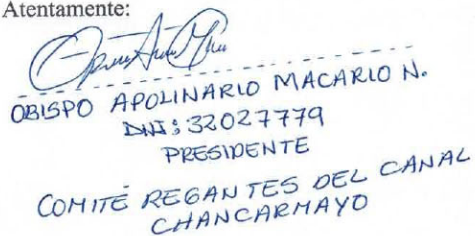 Atentamente:
OBISPO APOLINARIO MACARIO N.
DNI: 32027779
PRESIDENTE
COMITÉ REGANTES DEL CANAL
CHANCARMAYO